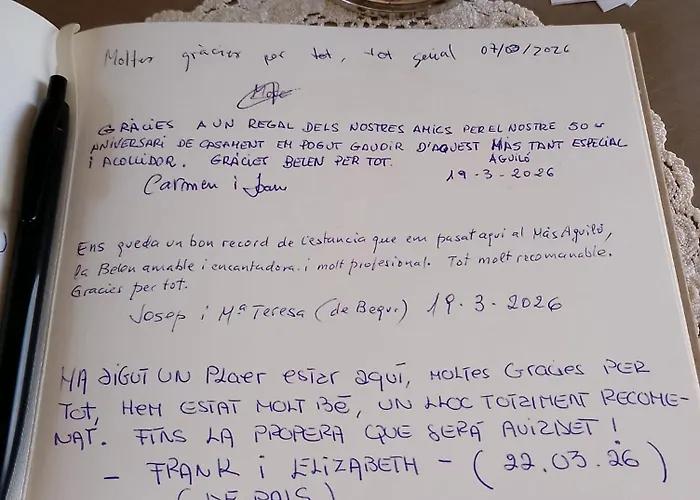 Moltes gràcies per tot, tot genial 07/03/2026
GRÀCIES A UN REGAL DELS NOSTRES AMICS PER EL NOSTRE 50 
ANIVERSARI DE CASAMENT EM POGUT GAUDIR D'AQUEST MÀS TANT ESPECIAL
I ACOLLIDOR. GRÀCIES BELEN PER TOT. AGUILÓ
19-3-2026
Carmen i Joan
Ens queda un bon record de l'estancia que em pasat aqui al Màs Aguiló,
la Belen amable i encantadora i molt profesional. Tot molt recomanable.
Gracies per tot.
Josep i Mª Teresa (de Begur) 19-3-2026
HA SIGUT UN PLAER ESTAR AQUÍ, MOLTES GRACIES PER
TOT, HEM ESTAT MOLT BÉ, UN LLOC TOTALMENT RECOME-
NAT. FINS LA PROPERA QUE SERÁ AVIADET!
- FRANK i ELIZABETH - (22.03.26)
(DE PALS)